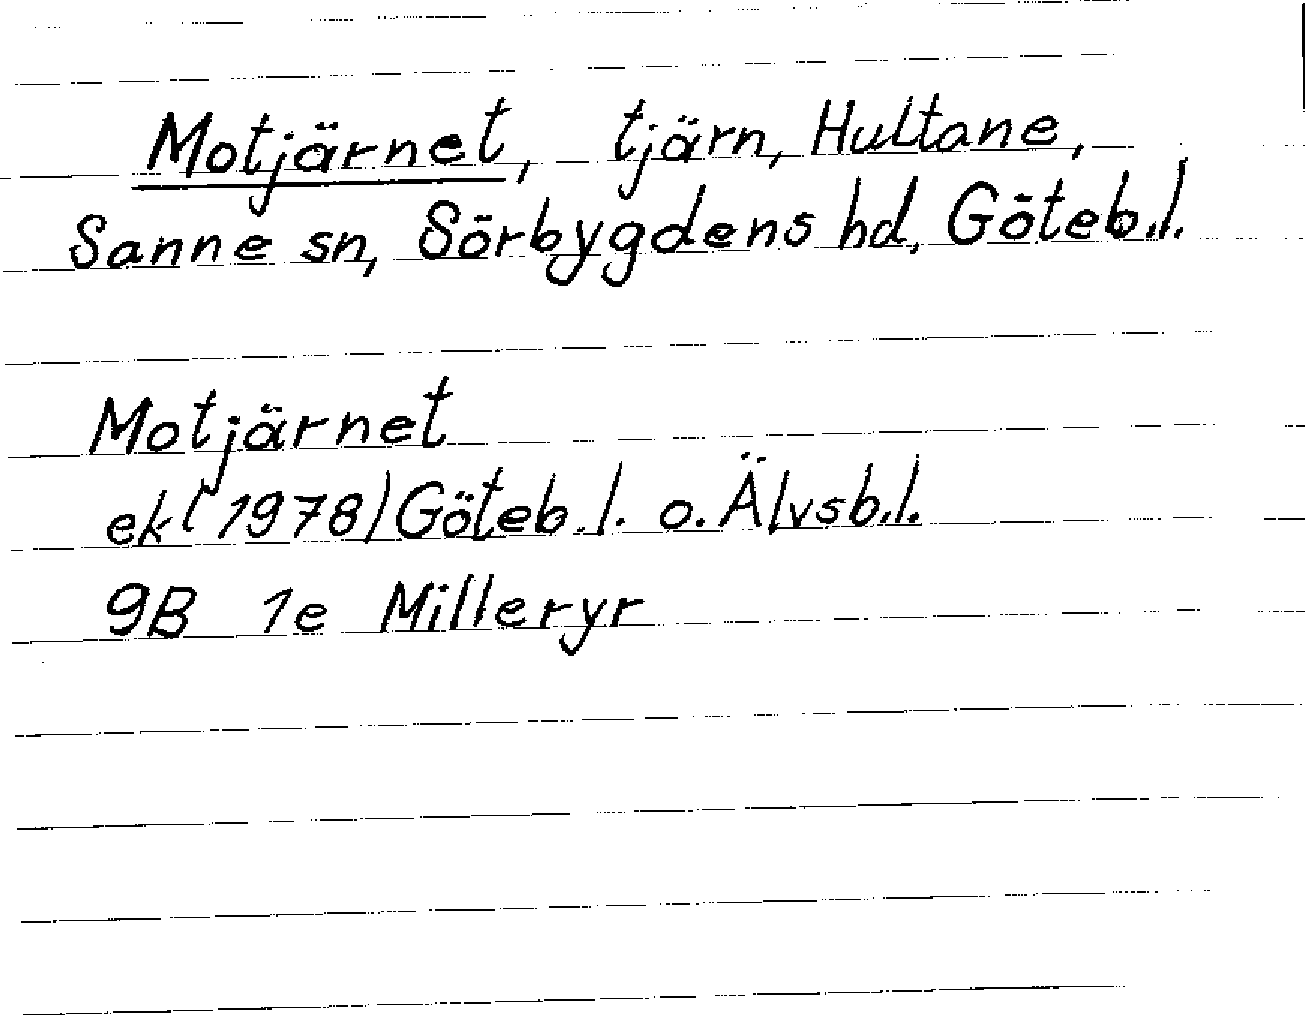 Motjärnet, tjärn, Hultane,
Sanne sn, Sörbygdens hd, Göteb.l.
Motjärnet
ek(1978) Göteb.l. o. Älvsb.l.
9B 1e Milleryr